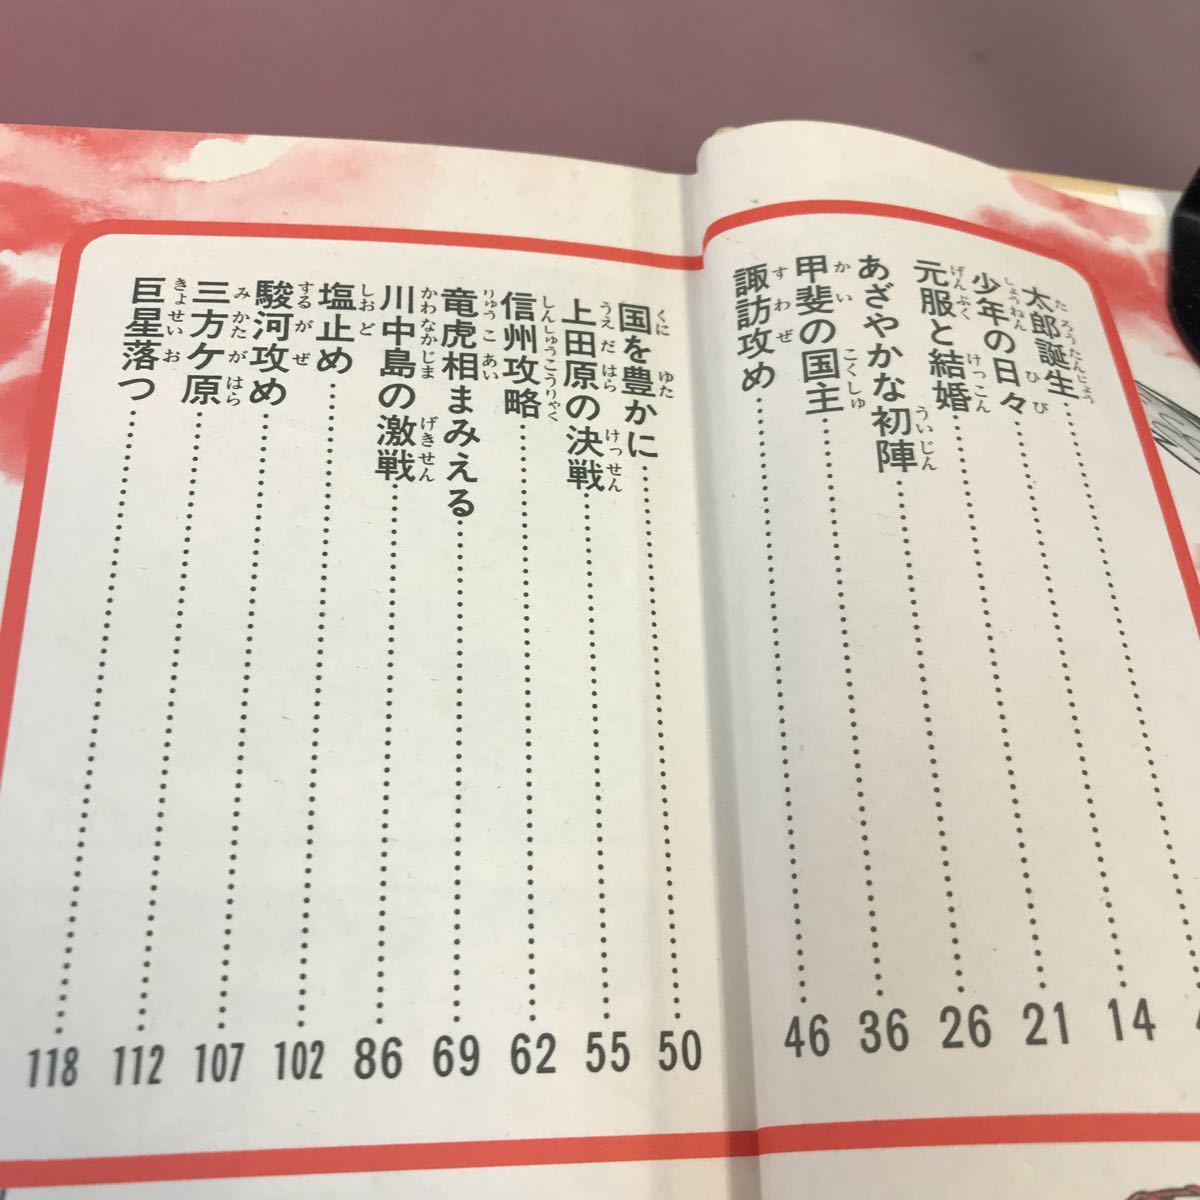 たろうたんじょう
太郎誕生
しょうねん ひび
少年の日々……14
げんぷく けっこん
元服と結婚……21
ういじん
あざやかな初陣……26
かい こくしゅ
甲斐の国主……36
すわぜ
諏訪攻め……46
くに ゆた
国を豊かに……50
うえだはら けっせん
上田原の決戦……55
しんしゅうこうりゃく
信州攻略……62
りゅうこあい
竜虎相まみえる……69
かわなかじま げきせん
川中島の激戦……86
しおど
塩止め……102
するがぜ
駿河攻め……107
みかたがはら
三方ケ原……112
きょせいお
巨星落つ……118